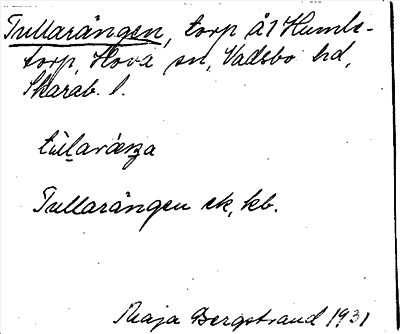 Tullarängen, torp å 1 Humle-
torp, Hova sn, Vadsbo hd,
Skarab. l.
Tullarängen ek, kb.
Maja Bergstrand 1931